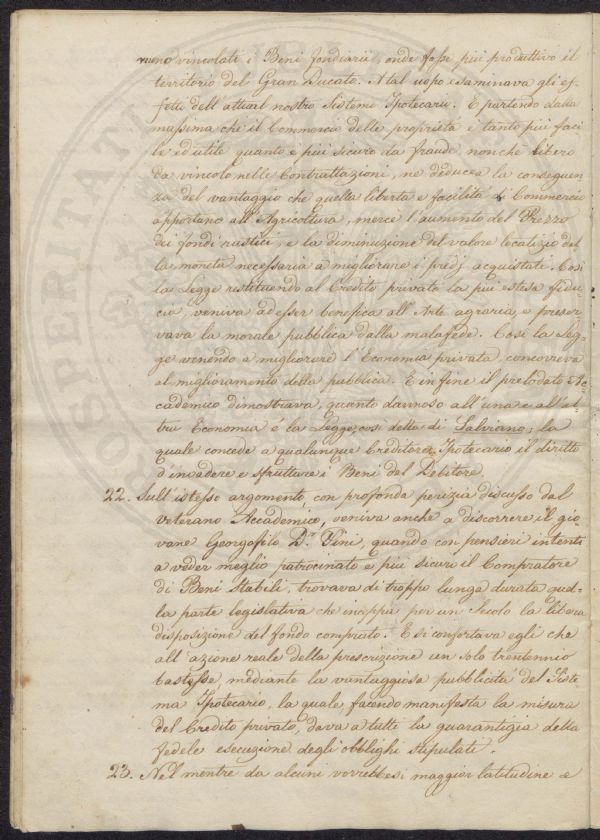 rieno vincolati i Beni fondiarii, onde fosse più produttivo il
territorio del Gran Ducato. A tal uopo esaminava gli ef-
fetti dell'attual nostro Sistema Ipotecario. E partendo dalla
massima che il Commercio delle proprietà è tanto più faci
le ed utile quanto è più sicuro da fraude, nonchè libero
da vincolo nelle Contrattazioni, ne deducea la conseguen
za del vantaggio che questa libertà e facilità di Commercio
apportano all'Agricoltura, mercè l'aumento del Prezzo
dei fondi rustici, e la diminuzione del valore locatizio del
la moneta necessaria a migliorare i predj acquistati. Così
la Legge restituendo al Credito privato la più estesa fidu-
cia, veniva ad esser benefica all'Arte agraria, e preser-
vava la morale pubblica dalla malafede. Così la Leg-
ge venendo a migliorare l'Economia privata, concorreva
al miglioramento della pubblica. E infine il prelodato Ac-
cademico dimostrava, quanto dannoso all'una e all'al
tra Economia è la Legge così detta di Salviano; la
quale concede a qualunque Creditore Ipotecario il diritto
d'invadere e sfruttare i Beni del Debitore.
22. Sull'istesso argomento, con profonda perizia discusso dal
veterano Accademico, veniva anche a discorrere il gio
vane Georgofilo Dr. Fini, quando con pensieri intenti
a veder meglio patrocinato e più sicuro il Compratore
di Beni Stabili, trovava di troppo lunga durata quel-
la parte legislativa che inceppa per un Secolo la libera
disposizione del fondo comprato. E si confortava egli che
all'azione reale della prescrizione un solo trentennio
bastasse, mediante la vantaggiosa pubblicità del Siste
ma Ipotecario, la quale facendo manifesta la misura
del Credito privato, dava a tutti la guarantigia della
fedele esecuzione degli obblighi stipulati.
23. Nel mentre da alcuni vorrebbesi maggior latitudine e
PROSPERITATI